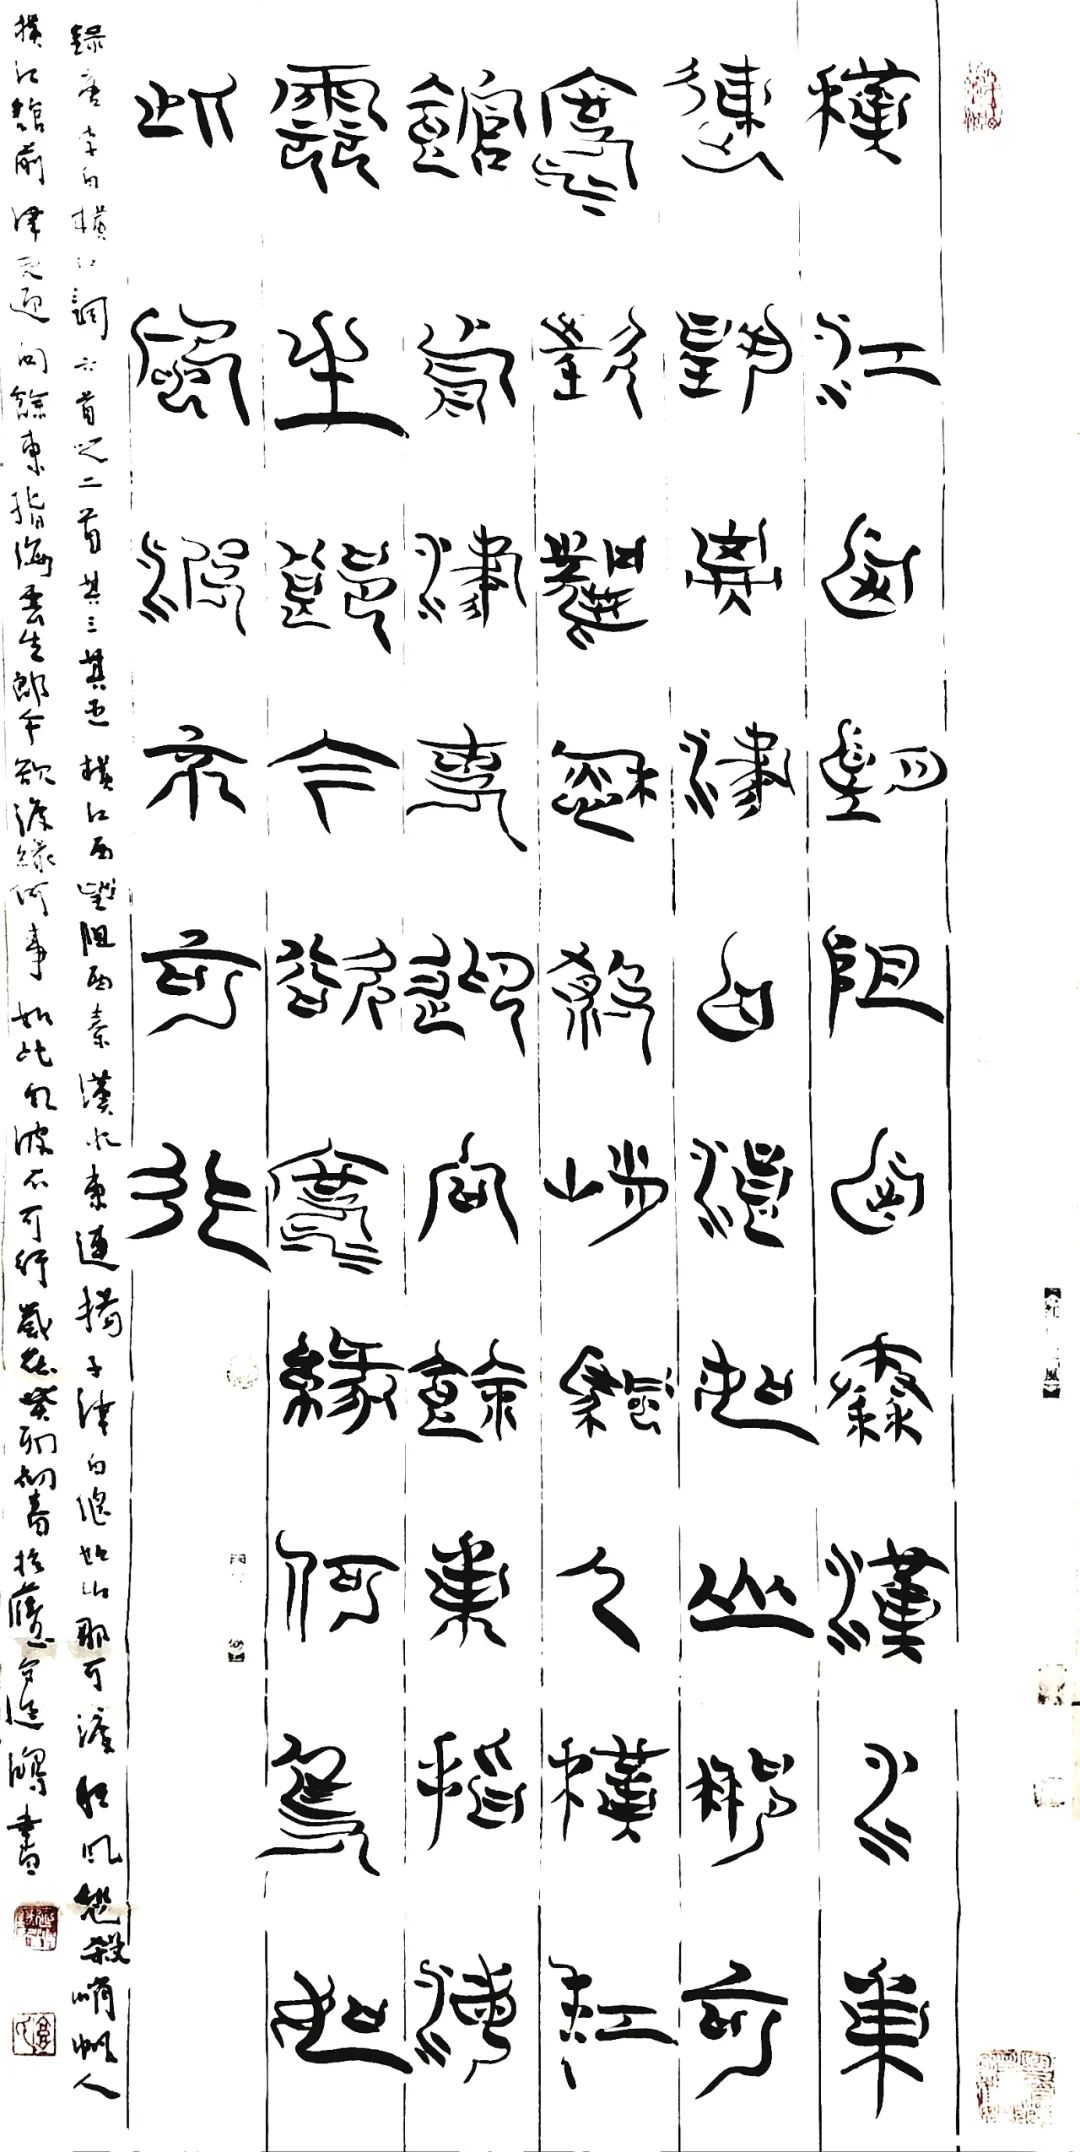 橫江西望阻西秦漢水東
連揚子津白浪如山那可
渡狂風愁殺峭帆人橫江
館前津吏迎向餘東指海
雲生郎今欲渡緣何事如
此風波不可行
錄唐李白橫江詞六首之二首其三其五橫江西望阻西秦漢水東連揚子津白浪如山那可渡狂風愁殺峭帆人
橫江館前津吏迎向餘東指海雲生郎今欲渡緣何事如此風波不可行歲在癸卯初春於延鴻書